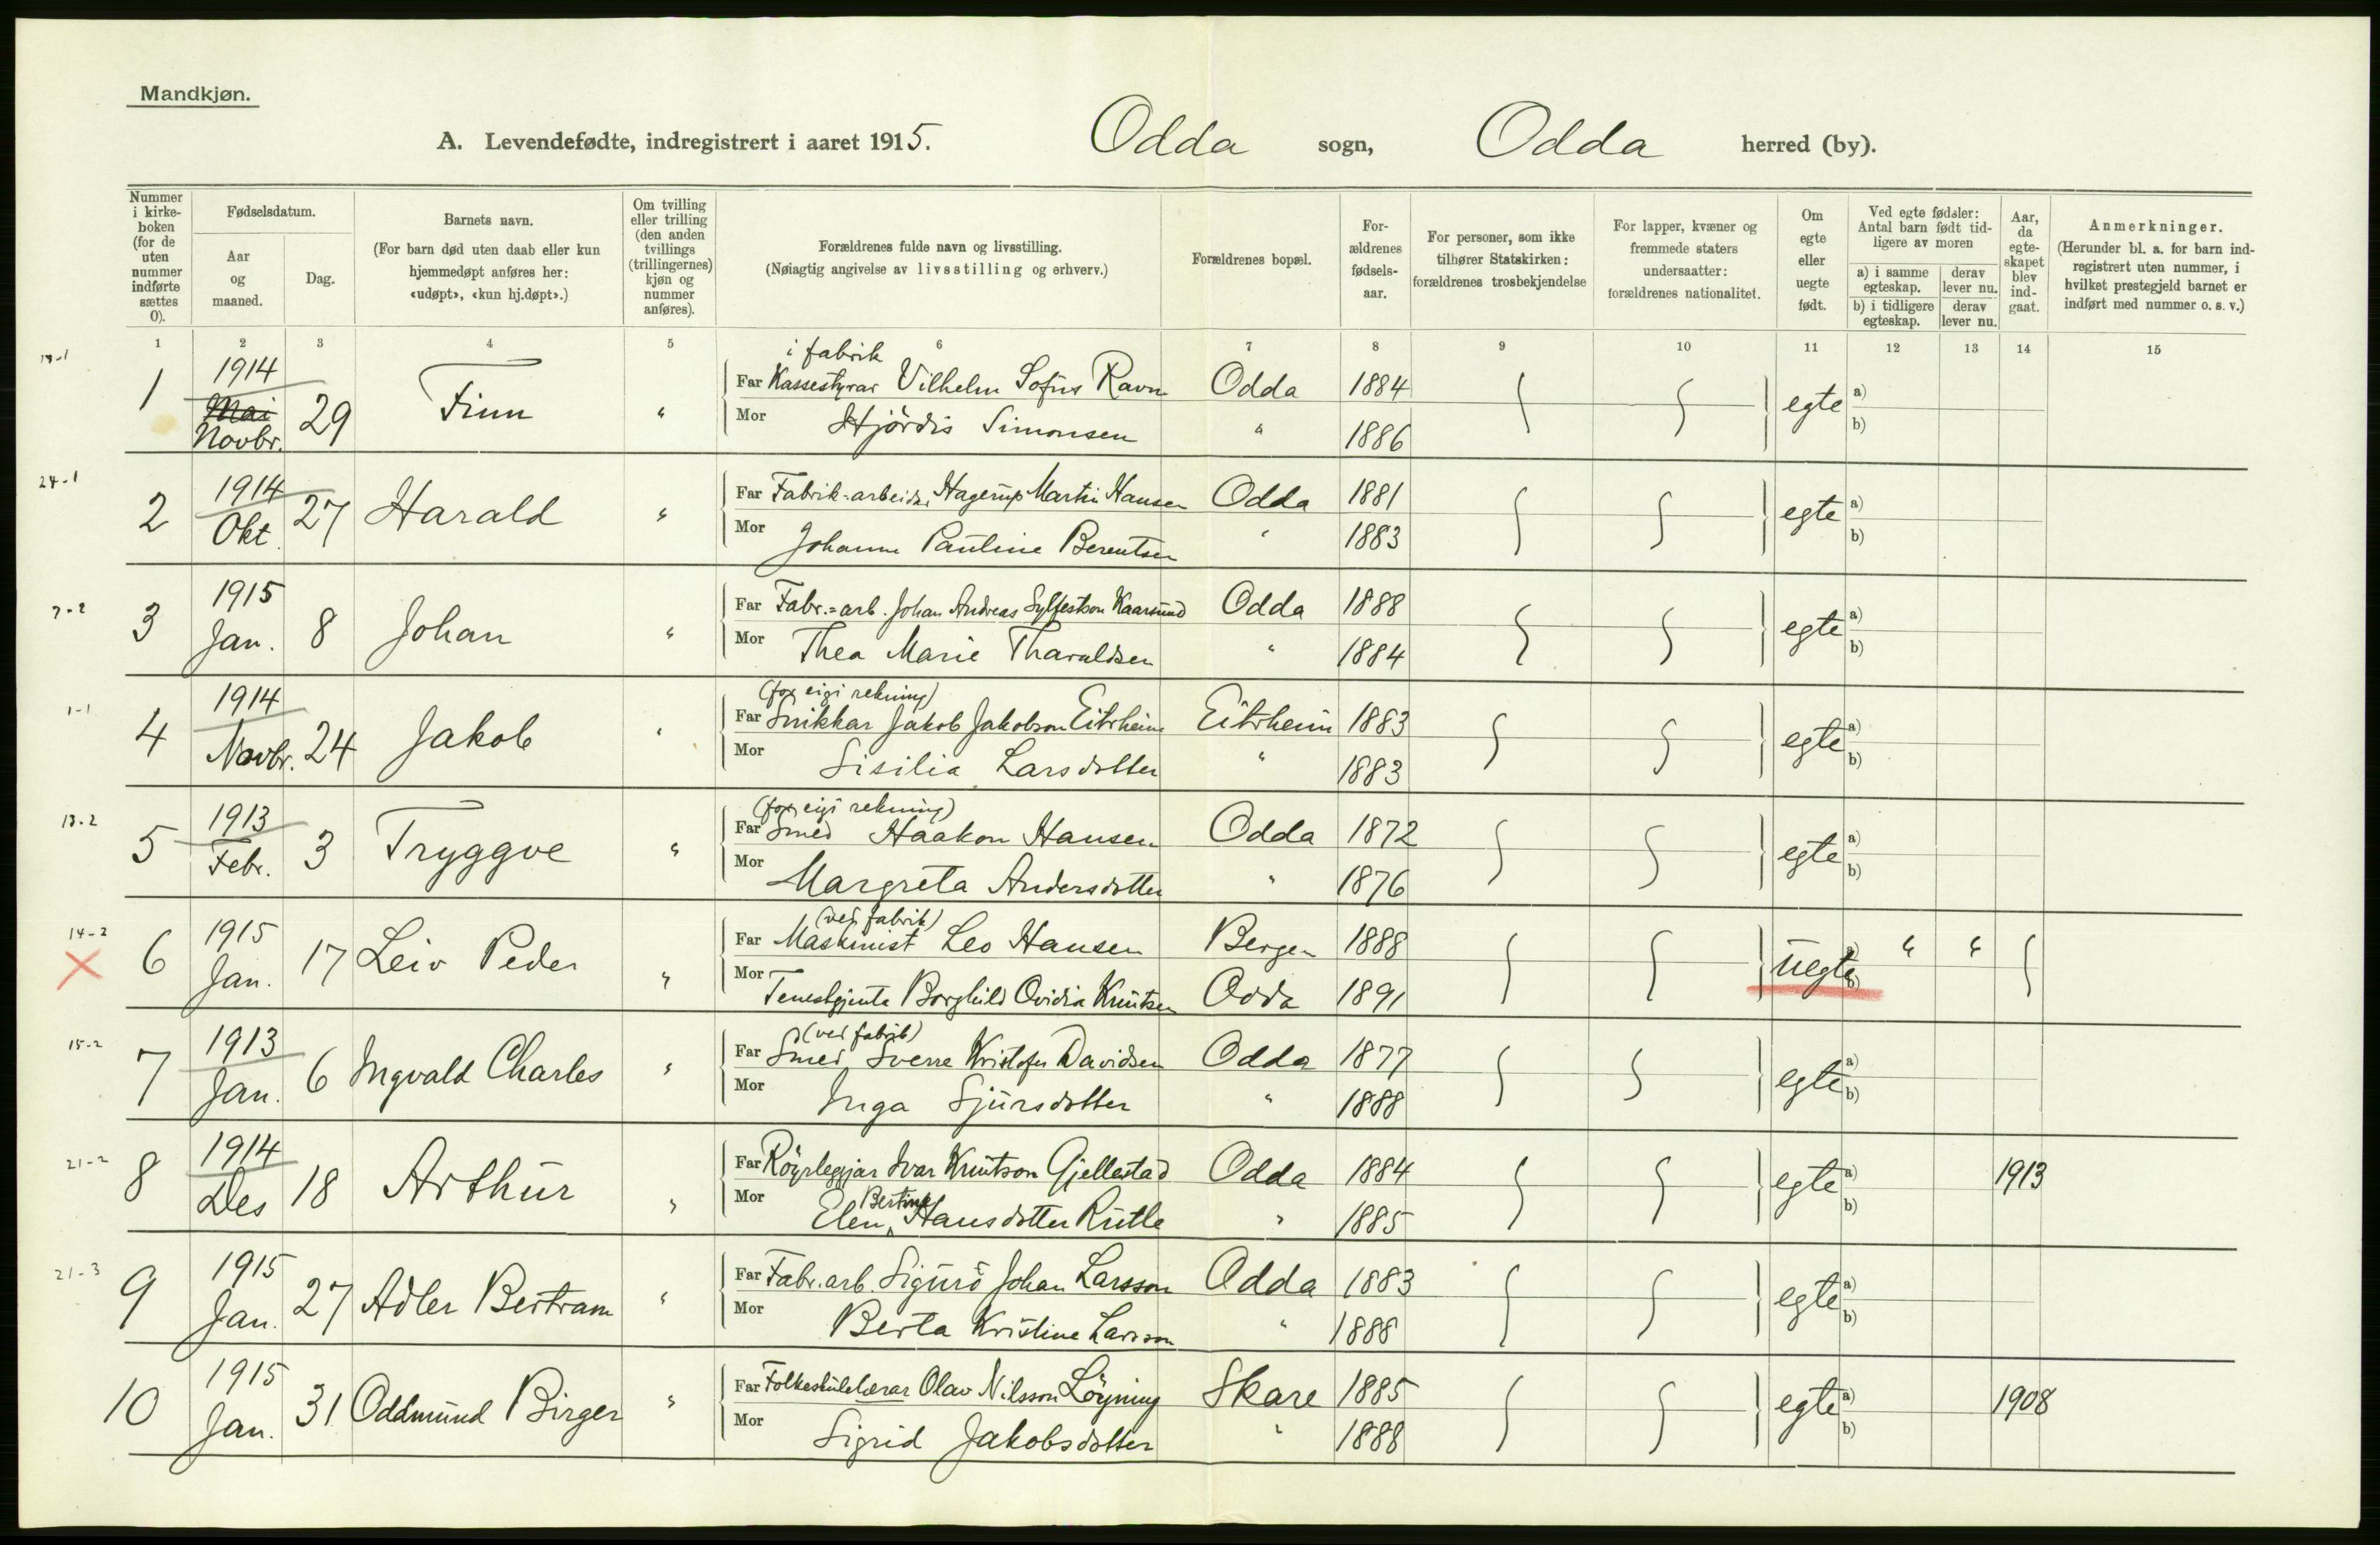 Mandkjøn.
A. Levendefødte, indregistrert i aaret 1915. Odda sogn, Odda herred (by).
Nummer i kirke-boken (for de uten nummer indførte sættes 0).
Fødselsdatum.
Aar og maaned.
Dag.
Barnets navn.
(For barn død uten daab eller kun hjemmedøpt anføres her: «udøpt», «kun hj.døpt».)
Om tvilling eller trilling (den anden tvillings (trillingernes) kjøn og nummer anføres).
Forældrenes fulde navn og livsstilling.
(Nøiagtig angivelse av livsstilling og erhverv.)
Forældrenes bopæl.
For-ældrenes fødsels-aar.
For personer, som ikke tilhører Statskirken: forældrenes trosbekjendelse
For lapper, kvæner og fremmede staters undersaatter: forældrenes nationalitet.
Om egte eller uegte født.
Ved egte fødsler: Antal barn født tid-ligere av moren
a) i samme egteskap.
derav lever nu.
b) i tidligere egteskap.
derav lever nu.
Aar, da egte-skapet blev ind-gaat.
Anmerkninger.
(Herunder bl. a. for barn ind-registrert uten nummer, i hvilket prestegjeld barnet er indført med nummer o. s. v.)
1 2 3 4 5 6 7 8 9 10 11 12 13 14 15
1 1914 i fabrik
Mai Novbr. 29 Finn " Far Kassestyrar Vilhelm Sofus Ravn Odda 1884 egte a)
Mor Hjördis Simonsen " 1886 b)
24-1
2 1914 Okt. 27 Harald " Far Fabrik-arbeidar Hagerup Martin Hansen Odda 1881 egte a)
Mor Johanne Pauline Berentsen " 1883 b)
7-2
3 1915 Jan. 8 Johan " Far Fabr.=arb. Johan Andreas Sylfestson Kaarsund Odda 1888 egte a)
Mor Thea Marie Tharaldsen " 1884 b)
1-1
4 1914 Novbr. 24 Jakob " (for eigi rekning)
Far Snikkar Jakob Jakobson Eitrheim Eitrheim 1883 egte a)
Mor Sisilia Larsdotter " 1883 b)
13-2
5 1913 Febr. 3 Tryggve " (for eigi rekning)
Far Smed Haakon Hansen Odda 1872 egte a)
Mor Margreta Andersdotter " 1876 b)
14-2
6 1915 Jan. 17 Leiv Peder " (ved fabrik)
Far Maskinist Leo Hansen Bergen 1888 uegte a) " "
Mor Tenestgjenta Borghild Ovidia Knutsen Odda 1891 b)
15-2
7 1913 Jan. 6 Ingvald Charles " (ved fabrik)
Far Smed Sverre Kristofer Davidsen Odda 1877 egte a)
Mor Inga Sjursdotter " 1888 b)
21-2
8 1914 Des 18 Arthur " Far Röyrleggjar Ivar Knutson Gjellestad Odda 1884 egte a) 1913
Mor Elen Bertine Hansdotter Rutle " 1885 b)
21-3
9 1915 Jan. 27 Adler Bertram " Far Fabr.arb. Sigurd Johan Larsson Odda 1883 egte a)
Mor Berta Kristine Larsson " 1888 b)
10 1915 Jan. 31 Oddmund Birger " Far Folkeskulelærar Olav Nilsson Löyning Skare 1885 egte a) 1908
Mor Sigrid Jakobsdotter " 1888 b)